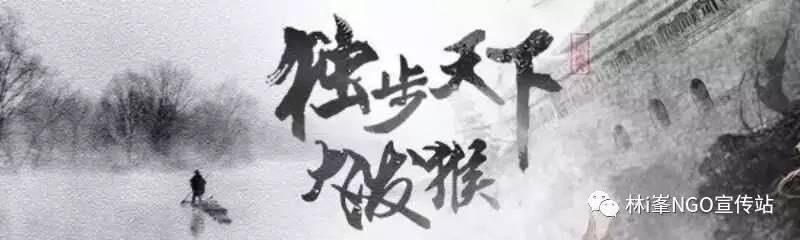 独步天下
大发猴
林i峯NGO宣传站